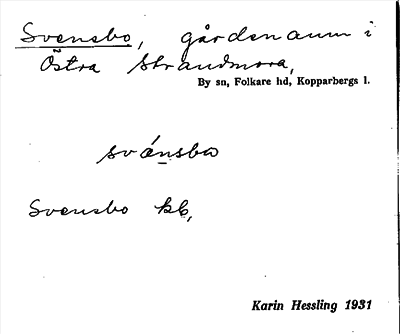 Svensbo, gårdenamn i
Östra Strandmora,
By sn, Folkare hd, Kopparbergs l.
svä́nsbω
Svensbo kb,
Karin Hessling 1931